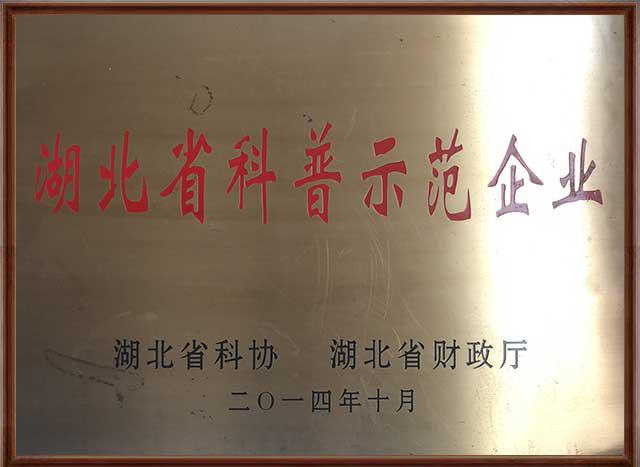 湖北省科普示范企业
湖北省科协 湖北省财政厅
二〇一四年十月